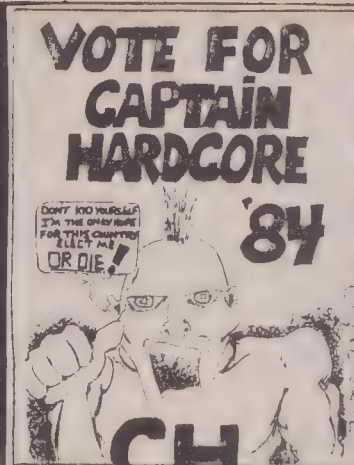 VOTE FOR
CAPTAIN
HARDCORE
'84
DON'T KID YOURSELF
I'M THE ONLY HOPE
FOR THIS COUNTRY
ELECT ME
OR DIE!
CH